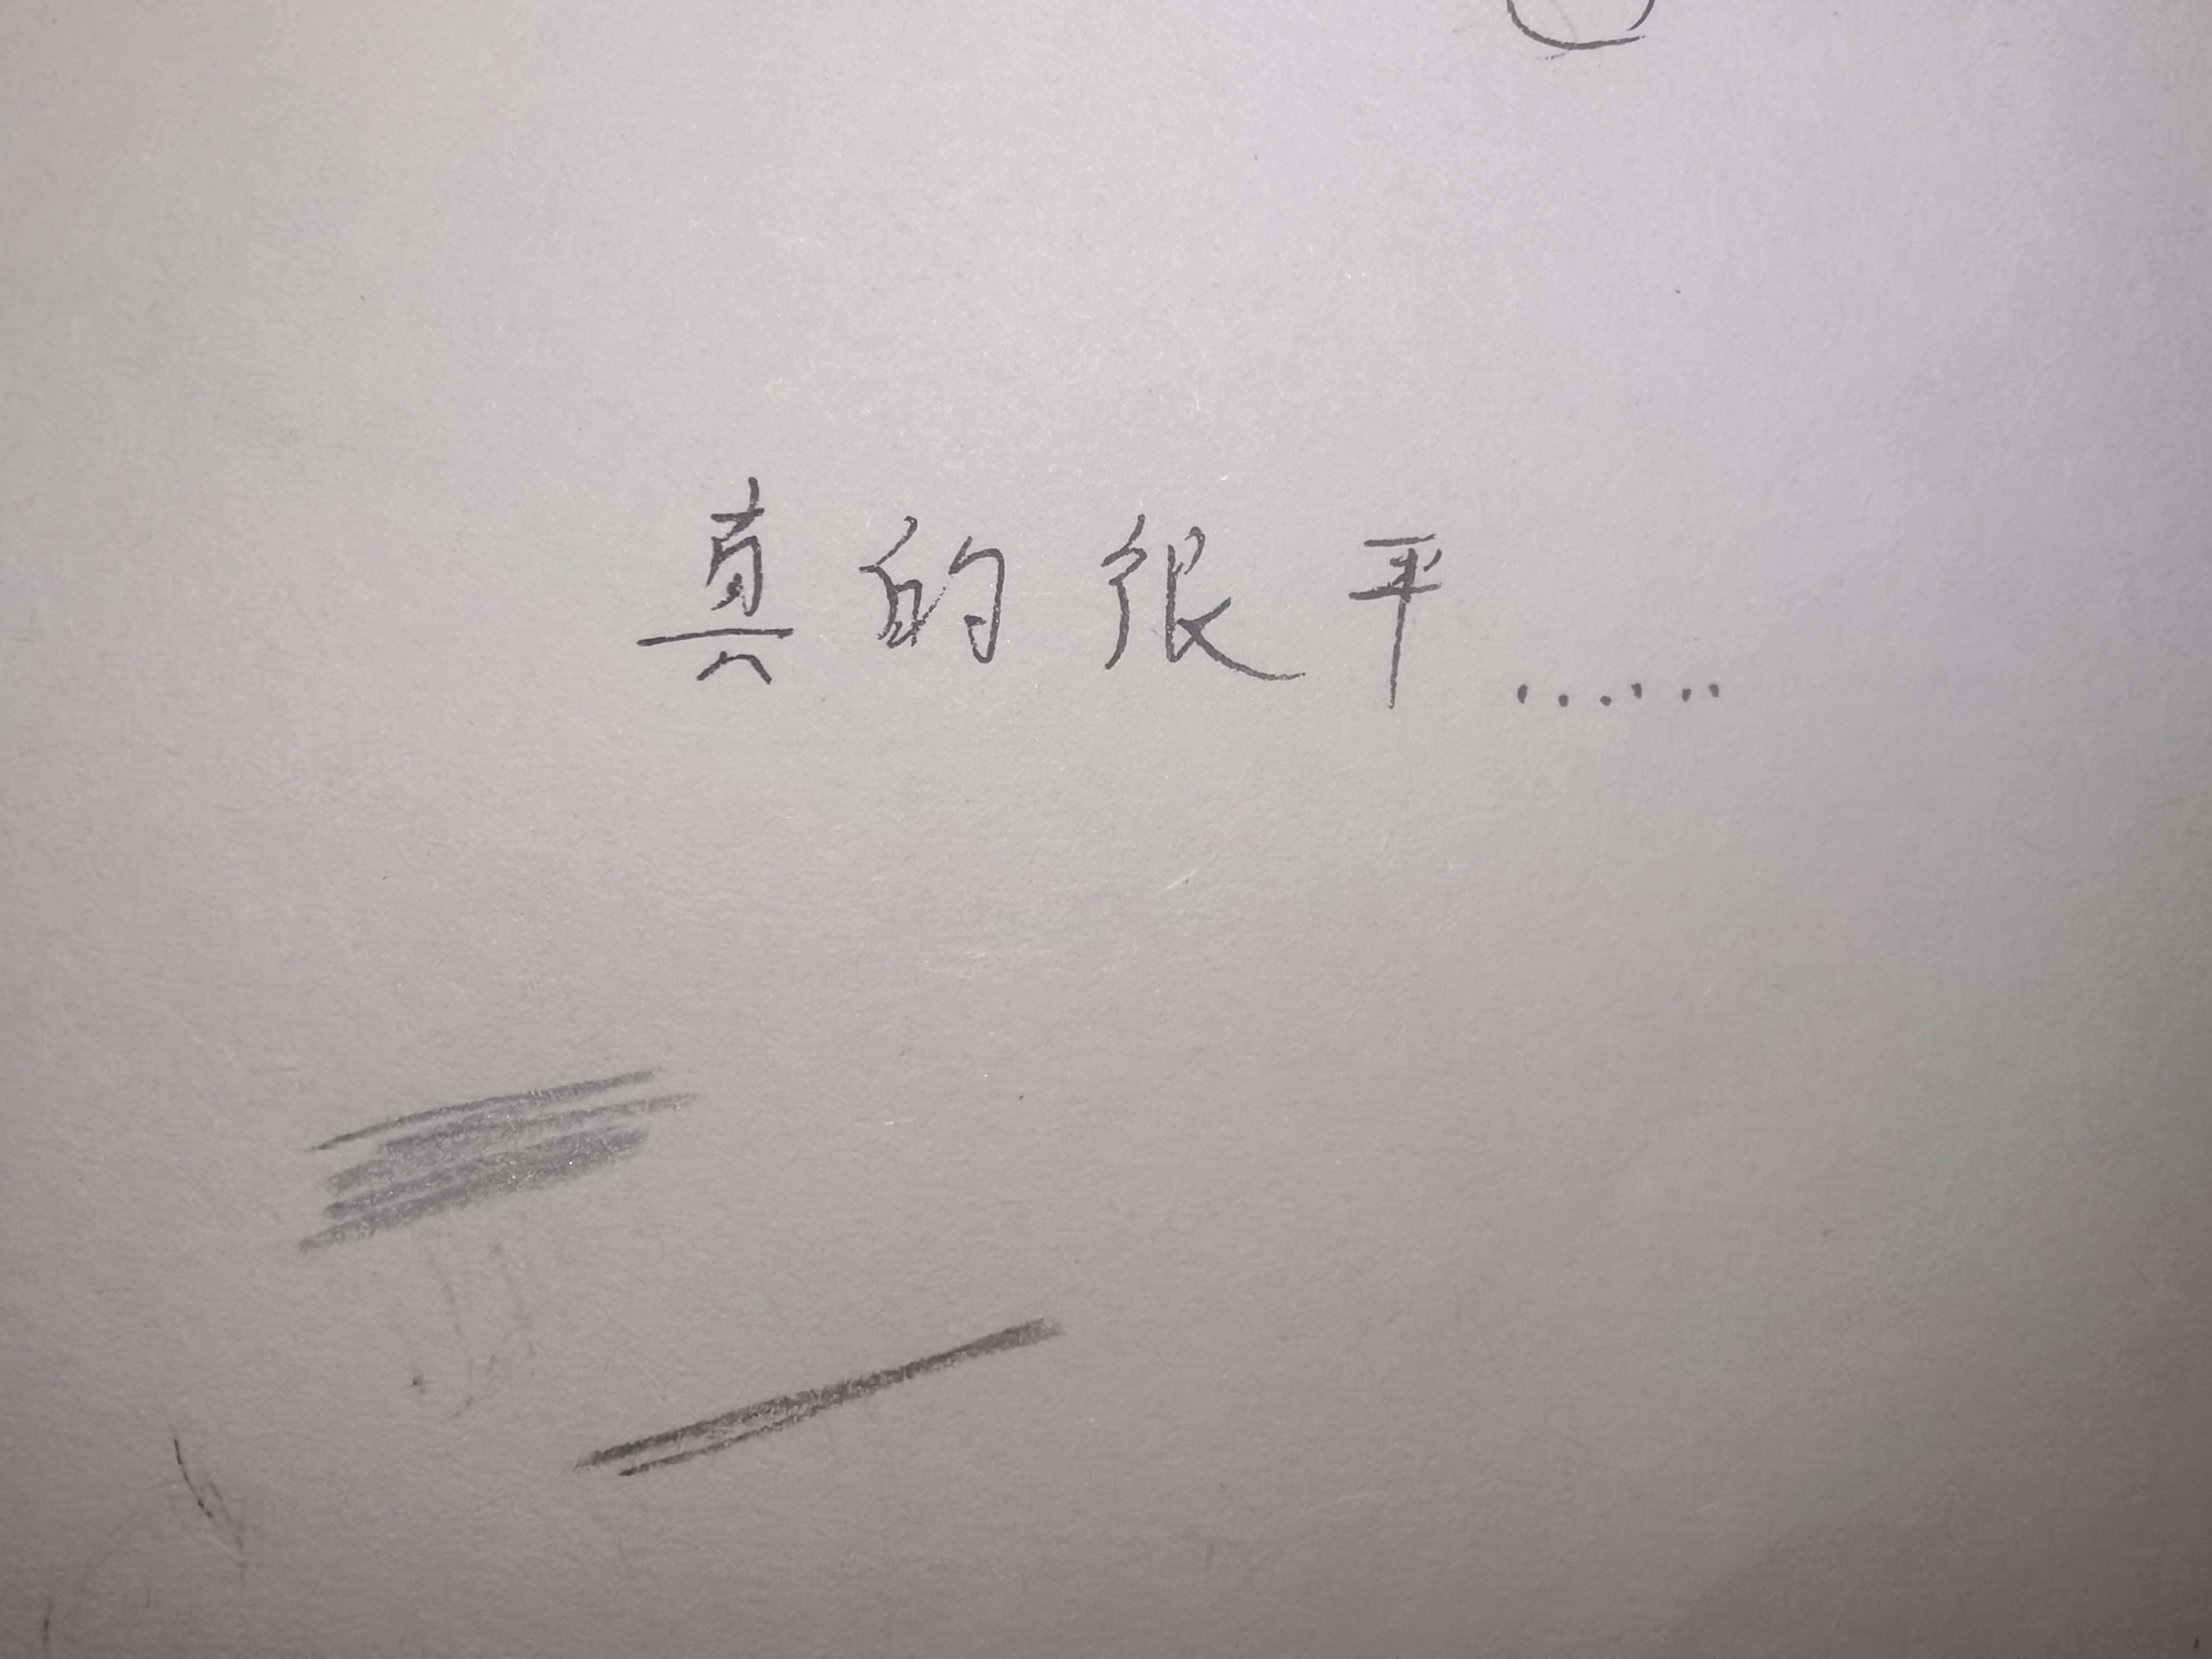 真的很平……